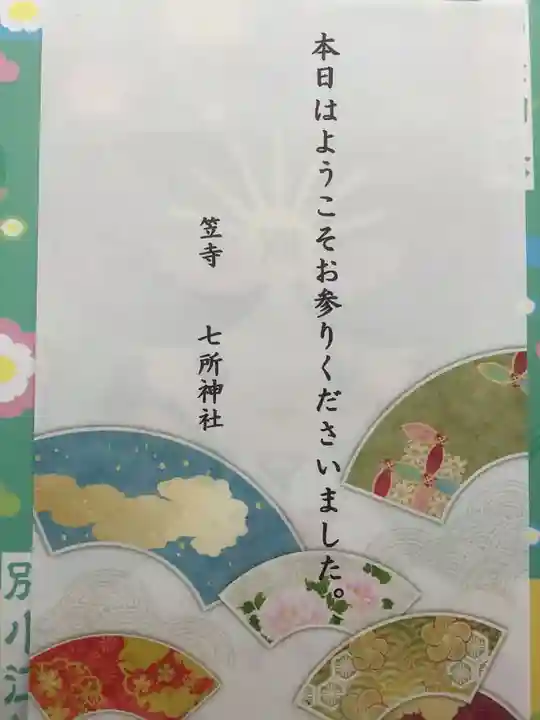 本日はようこそお参りくださいました。
笠寺 七所神社
別小江